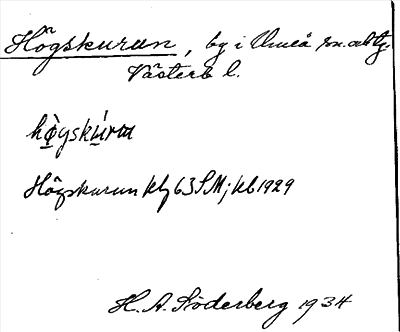 Högskurun, by i Umeå sn. och tg.
Västerb l.
hö̀yskúrɷn
Högskurun kbg 63 SM; kb 1929
H. A. Söderberg 1934